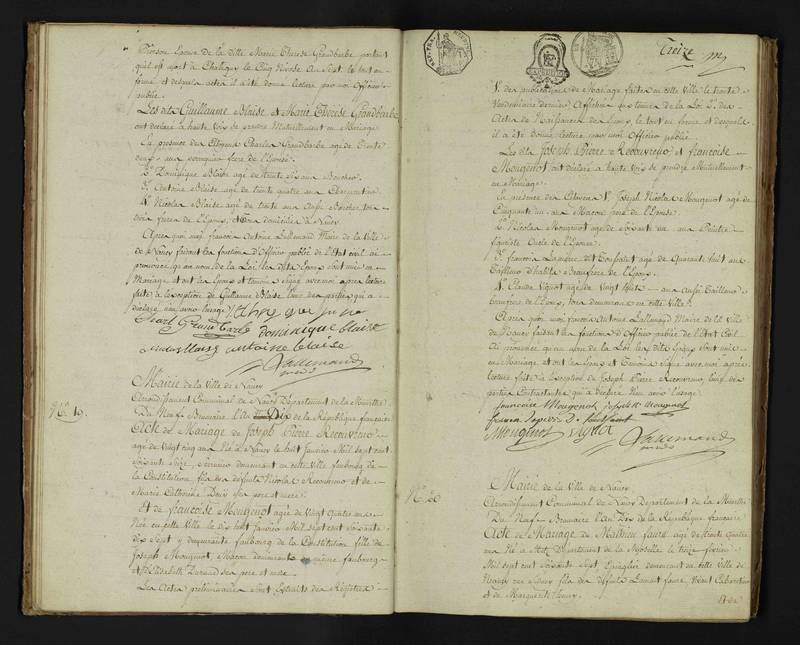 Epouse de la dite Marie Therese Grandbarbe portant
qu'il est mort à Chaligny le Cinq Nivose An Sept. le tout en
forme et desquels actes il a été donné lecture par moi Officier
public.
Les dits Guillaume Blaise et Marie Therese Grandbarbe
ont déclaré à haute voix se prendre Mutuellement en Mariage
En presence des Citoyens Charles Grandbarbe agé de trente
neuf ans perruquier frere de l'Epouse.
2°. Dominique Blaise agé de trente six ans Boucher
3°. Antoine Blaise agé de trente quatre ans Charpentier
4°. Nicolas Blaise agé de trente ans Aussi Boucher, tous
trois freres de l'Epoux, et domiciliés à Nancy
Après quoi moi françois Antoine Lallemand Maire de la Ville
de Nancy faisant les fonctions d'Officier public de l'Etat civil ai
prononcé qu'au nom de la Loi les dits Epoux sont unis en
Mariage et ont les Epoux et temoins signé avec moi après lecture
faite à l'exception de Guillaume Blaise l'une des parties qui a
déclaré
Grand barbe dominique blaise
antoine blaise
Lallemand
N°. 19.
Mairie de la Ville de Nancy
Arrondissement Communal de Nancy Département de la Meurthe
Du Neuf Brumaire l'An Dix de la République française
Acte de Mariage de Joseph Pierre Recouvreur
agé de Vingt cinq ans Né à Nancy le huit Janvier Mil sept cent
soixante seize, serrurier demeurant en cette Ville faubourg de
la Constitution, fils des défunts Nicolas Recouvreur et de
Marie Catherine ses pere et mere
Et de françoise Mougenot agée de Vingt quatre ans
Née en cette Ville le dix huit Janvier Mil sept cent soixante
dix Sept y demeurante faubourg de la Constitution fille de
Joseph Mougenot, Macon demeurant même faubourg
et d'Elisabeth Durand ses pere et mere
Les Actes préliminaires sont Extraits des Registres
Treize
1°. des publications de Mariage faites en cette Ville le trente
Vendemiaire dernier Affichées aux termes de la Loi 2°. des
Actes de Naissances des Epoux, le tout en forme et desquels
il a été donné lecture par moi Officier public.
Les dits Joseph Pierre Recouvreur et françoise
Mougenot ont déclaré à haute voix se prendre Mutuellement
en Mariage
En presence des Citoyens 1°. Joseph Nicolas Mougenot agé de
Cinquante un ans Macon pere de l'Epouse
2°. Nicolas Mougenot agé de soixante un ans Peintre
figuriste Oncle de l'Epouse
3°. francois Lapierre dit Toussaint agé de Quarante huit ans
Tailleur d'habits Beaufrere de l'Epoux.
4°. Claude Viquot agé de Vingt huit ans aussi Tailleur
beaufrere de l'Epoux, tous demeurans en cette Ville.
Après quoi moi francois Antoine Lallemand Maire de la Ville
de Nancy faisant les fonctions d'Officier public de l'Etat Civil
ai prononcé qu'au nom de la Loi, les dits Epoux sont unis
en Mariage et ont les Epoux et Temoins signé avec moi après
lecture faite à l'exception de Joseph Pierre Recouvreur, l'une des
parties Contractantes qui a déclaré n'en avoir l'usage
francoise Mougenot Joseph Mougenot
Mougenot
Lallemand
N°. 20
Mairie de la Ville de Nancy
Arrondissement Communal de Nancy Département de la Meurthe
Du Neuf Brumaire l'An Dix de la République française
Acte de Mariage de Mathieu faure agé de trente Quatre
ans Né à Metz Département de la Moselle le treize fevrier
Mil sept cent soixante Sept Epinglier demeurant en cette Ville de
Nancy fils des défunts faure, Vivant Cabaretier
et de Marguerite